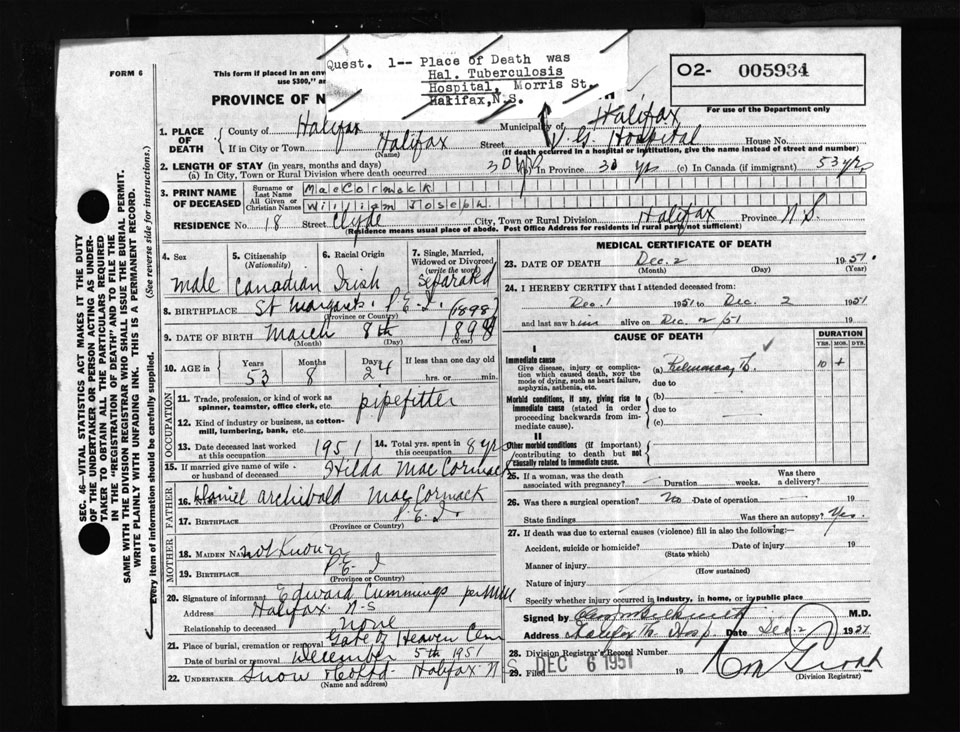 FORM 6
This form if placed in an env
use $300," ar
Quest. 1-- Place of Death was
Hal. Tuberculosis
Hospital, Morris St.,
Halifax,N.S.
O2- 005934
For use of the Department only
PROVINCE OF N
1. PLACE OF DEATH
County of Halifax Municipality of Halifax
If in City or Town Halifax (Name) Street V.G. Hospital House No.
(If death occurred in a hospital or institution, give the name instead of street and number)
2. LENGTH OF STAY (in years, months and days)
(a) In City, Town or Rural Division where death occurred 30 yrs (b) In Province 30 yrs (c) In Canada (if immigrant) 53 yrs
3. PRINT NAME OF DECEASED
Surname or Last Name MacCormack
All Given or Christian Names William Joseph
RESIDENCE No. 18 Street Clyde City, Town or Rural Division Halifax Province N.S.
(Residence means usual place of abode. Post Office Address for Residents in rural parts not sufficient)
4. Sex male
5. Citizenship (Nationality) Canadian
6. Racial Origin Irish
7. Single, Married, Widowed or Divorced (write the word) separated
8. BIRTHPLACE St Margarets. P.E.I. (1898)
(Province or Country)
9. DATE OF BIRTH March 8th 1898
(Month) (Day) (Year)
10. AGE in Years 53 Months 8 Days 24 If less than one day old hrs. or min.
OCCUPATION
11. Trade, profession, or kind of work as spinner, teamster, office clerk, etc. pipefitter
12. Kind of industry or business, as cotton-mill, lumbering, bank, etc.
13. Date deceased last worked at this occupation 1951
14. Total yrs. spent in this occupation 8 yrs
15. If married give name of wife or husband of deceased Hilda MacCormack
FATHER
16. Name Daniel Archibald MacCormack
17. BIRTHPLACE P.E.I.
(Province or Country)
MOTHER
18. MAIDEN NAME not Known
19. BIRTHPLACE P.E.I
(Province or Country)
20. Signature of informant Edward Cummings per
Address Halifax N-S
Relationship to deceased none
21. Place of burial, cremation or removal Gate of Heaven Cem
Date of burial or removal December 5th 1951
22. UNDERTAKER Snow & Co Ltd. Halifax N S
(Name and address)
MEDICAL CERTIFICATE OF DEATH
23. DATE OF DEATH Dec. 2 1951.
(Month) (Day) (Year)
24. I HEREBY CERTIFY that I attended deceased from:
Dec. 1 1951 to Dec. 2 1951
and last saw him alive on Dec. 2/51 19
CAUSE OF DEATH
DURATION
YRS. MOS. DYS.
I
Immediate cause
Give disease, injury or complication which caused death, NOT the mode of dying, such as heart failure, asphyxia, asthenia, etc.
(a) Pulmonary Tb. 10 +
due to
Morbid conditions, if any, giving rise to immediate cause (stated in order proceeding backwards from immediate cause).
(b)
due to
(c)
II
Other morbid conditions (if important) contributing to death but not causally related to immediate cause.
25. If a woman, was the death associated with pregnancy? Duration weeks. Was there a delivery?
26. Was there a surgical operation? No Date of operation 19
State findings Was there an autopsy? Yes.
27. If death was due to external causes (violence) fill in also the following:—
Accident, suicide or homicide? Date of injury 19
(State which)
Manner of injury
(How sustained)
Nature of injury
Specify whether injury occurred in industry, in home, or in public place
Signed by M.D.
Address Halifax Hosp. Date Dec. 2 1951
28. Division Registrar's Record Number
29. Filed DEC 6 1951 19
(Division Registrar)
SEC. 46—VITAL STATISTICS ACT MAKES IT THE DUTY
OF THE UNDERTAKER OR PERSON ACTING AS UNDER-
TAKER TO OBTAIN ALL THE PARTICULARS REQUIRED
IN THE "REGISTRATION OF DEATH" AND TO FILE THE
SAME WITH THE DIVISION REGISTRAR WHO SHALL ISSUE THE BURIAL PERMIT.
WRITE PLAINLY WITH UNFADING INK. THIS IS A PERMANENT RECORD.
Every item of information should be carefully supplied. (See reverse side for instructions.)